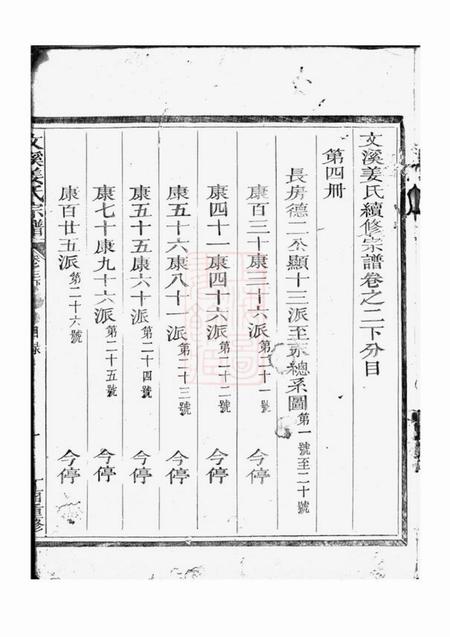 文溪姜氏續修宗譜卷之二下分目
第四冊
長房德二公顯十三派至東總系圖第一號至二十號
康百三十康三十六派第二十一號 今停
康四十一康四十六派第二十二號 今停
康五十六康八十一派第二十三號 今停
康五十五康六十派第二十四號 今停
康七十康九十六派第二十五號 今停
康百廿五派第二十六號 今停
文溪姜氏宗譜 目錄
重修